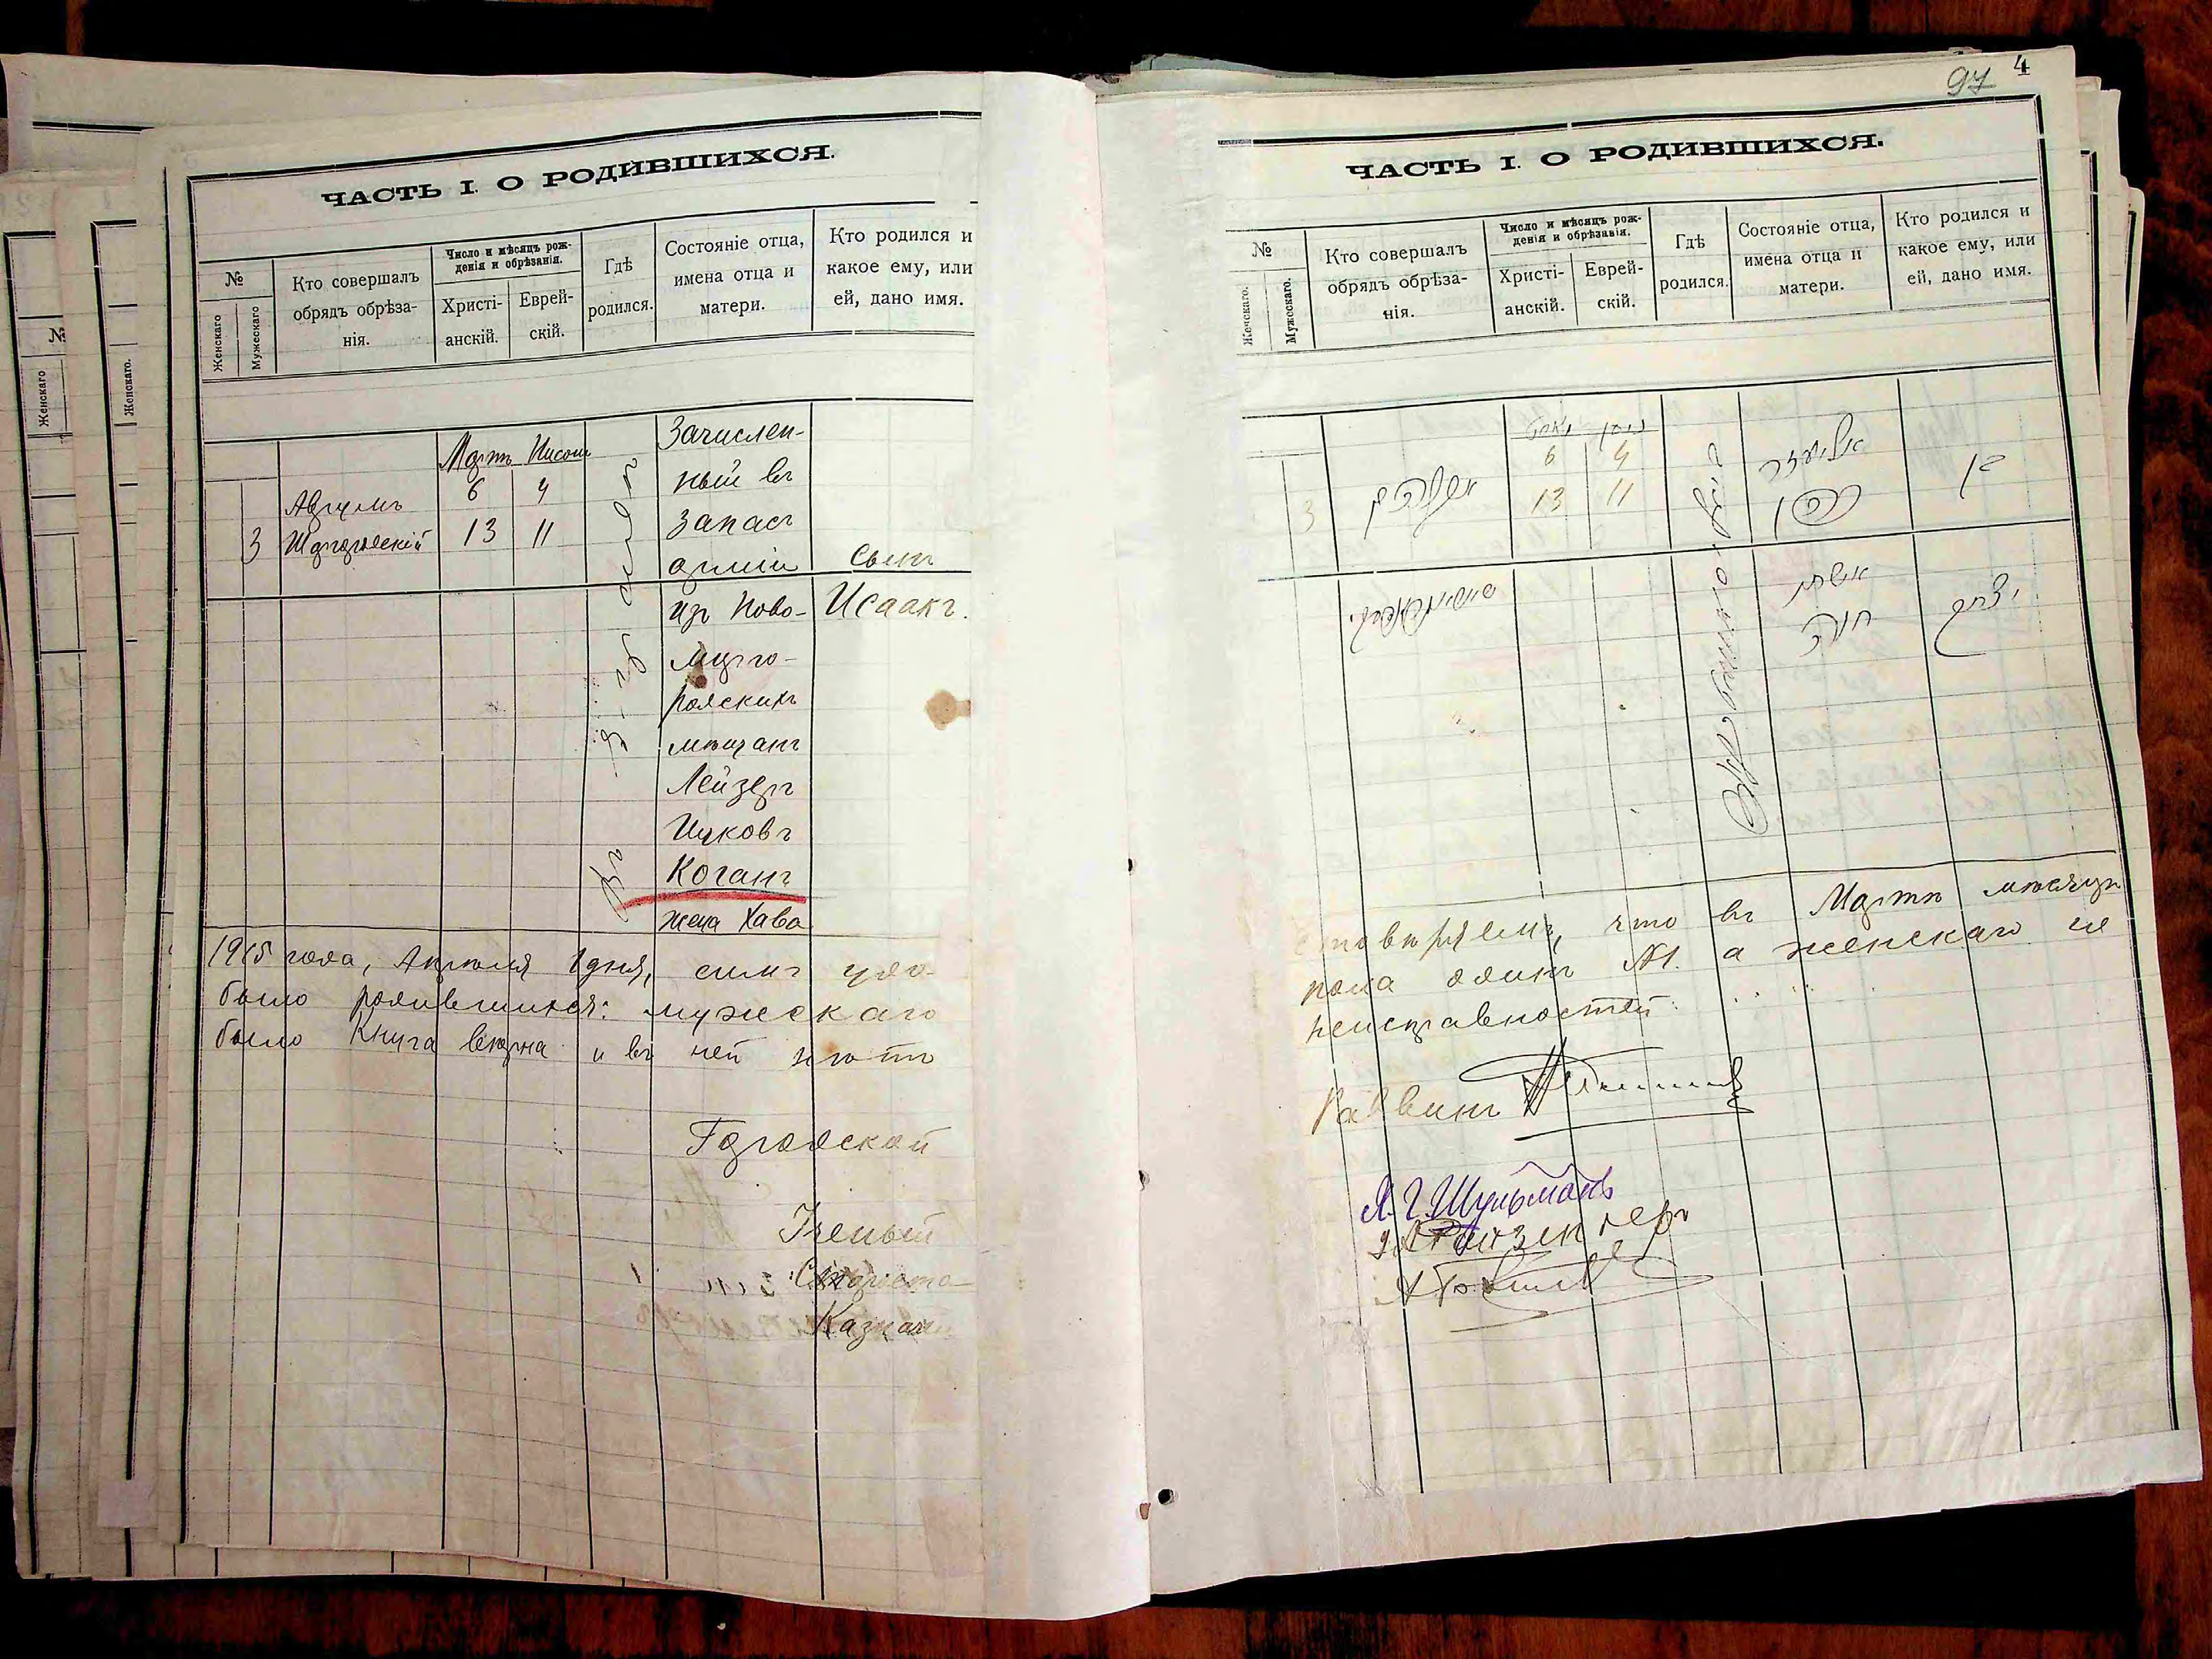 ЧАСТЬ I. О РОДИВШИХСЯ.
№
Женскаго
Мужескаго
Кто совершалъ
обрядъ обрѣза-
нія.
Число и мѣсяцъ рож-
денія и обрѣзанія.
Христі-
анскій.
Еврей-
скій.
Гдѣ
родился.
Состояніе отца,
имена отца и
матери.
Кто родился и
какое ему, или
ей, дано имя.
3
Мартъ Нисонъ
6 4
13 11
Зачислен-
ный въ
запасъ
арміи
изъ Ново-
мирго-
родскихъ
мѣщанъ
Лейзеръ
Ицковъ
Коганъ
жена Хава
сынъ
Исаакъ.
1915 года, Апрѣля 1 дня, симъ удо-
было родившихся: мужескаго
было Книга вѣрна и въ ней нѣтъ
Городской
Ученый
Староста
Казначей
97 4
ЧАСТЬ I. О РОДИВШИХСЯ.
№
Женскаго.
Мужескаго.
Кто совершалъ
обрядъ обрѣза-
нія.
Число и мѣсяцъ рож-
денія и обрѣзанія.
Христі-
анскій.
Еврей-
скій.
Гдѣ
родился.
Состояніе отца,
имена отца и
матери.
Кто родился и
какое ему, или
ей, дано имя.
3
מארט ניסן
6 4
13 11
אליעזר
כהן
אשתו
חוה
בן
יצחק
стовѣряемъ, что въ Мартѣ мѣсяцѣ
пола одинъ №1. а женскаго не
неисправностей.
Раввинъ
Я. Г. Шульманъ
№
Женскаго
Женскаго.